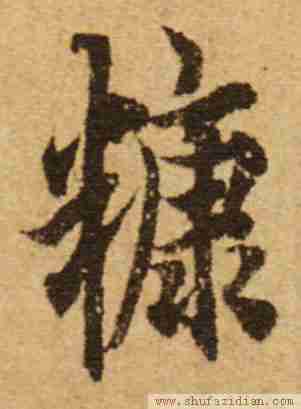 糠
www.shufazidian.com